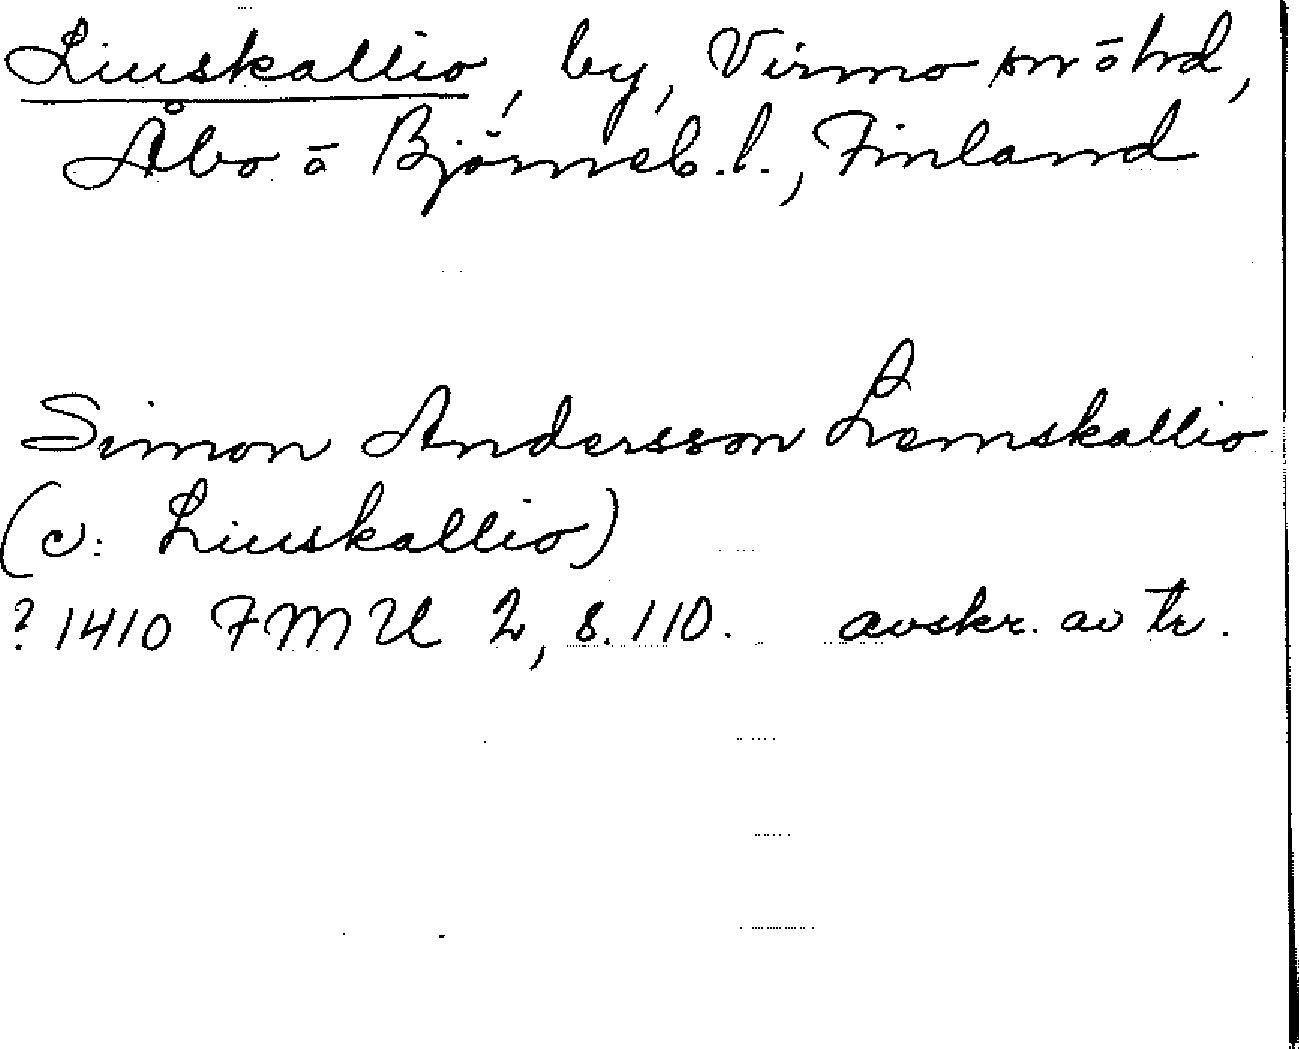 Liuskallio, by, Virmo sn o hd,
Åbo o Björneb. l., Finland
Simon Andersson Lemskallio
(ɔ: Liuskallio)
? 1410 FMU 2, s. 110. avskr. av tr.